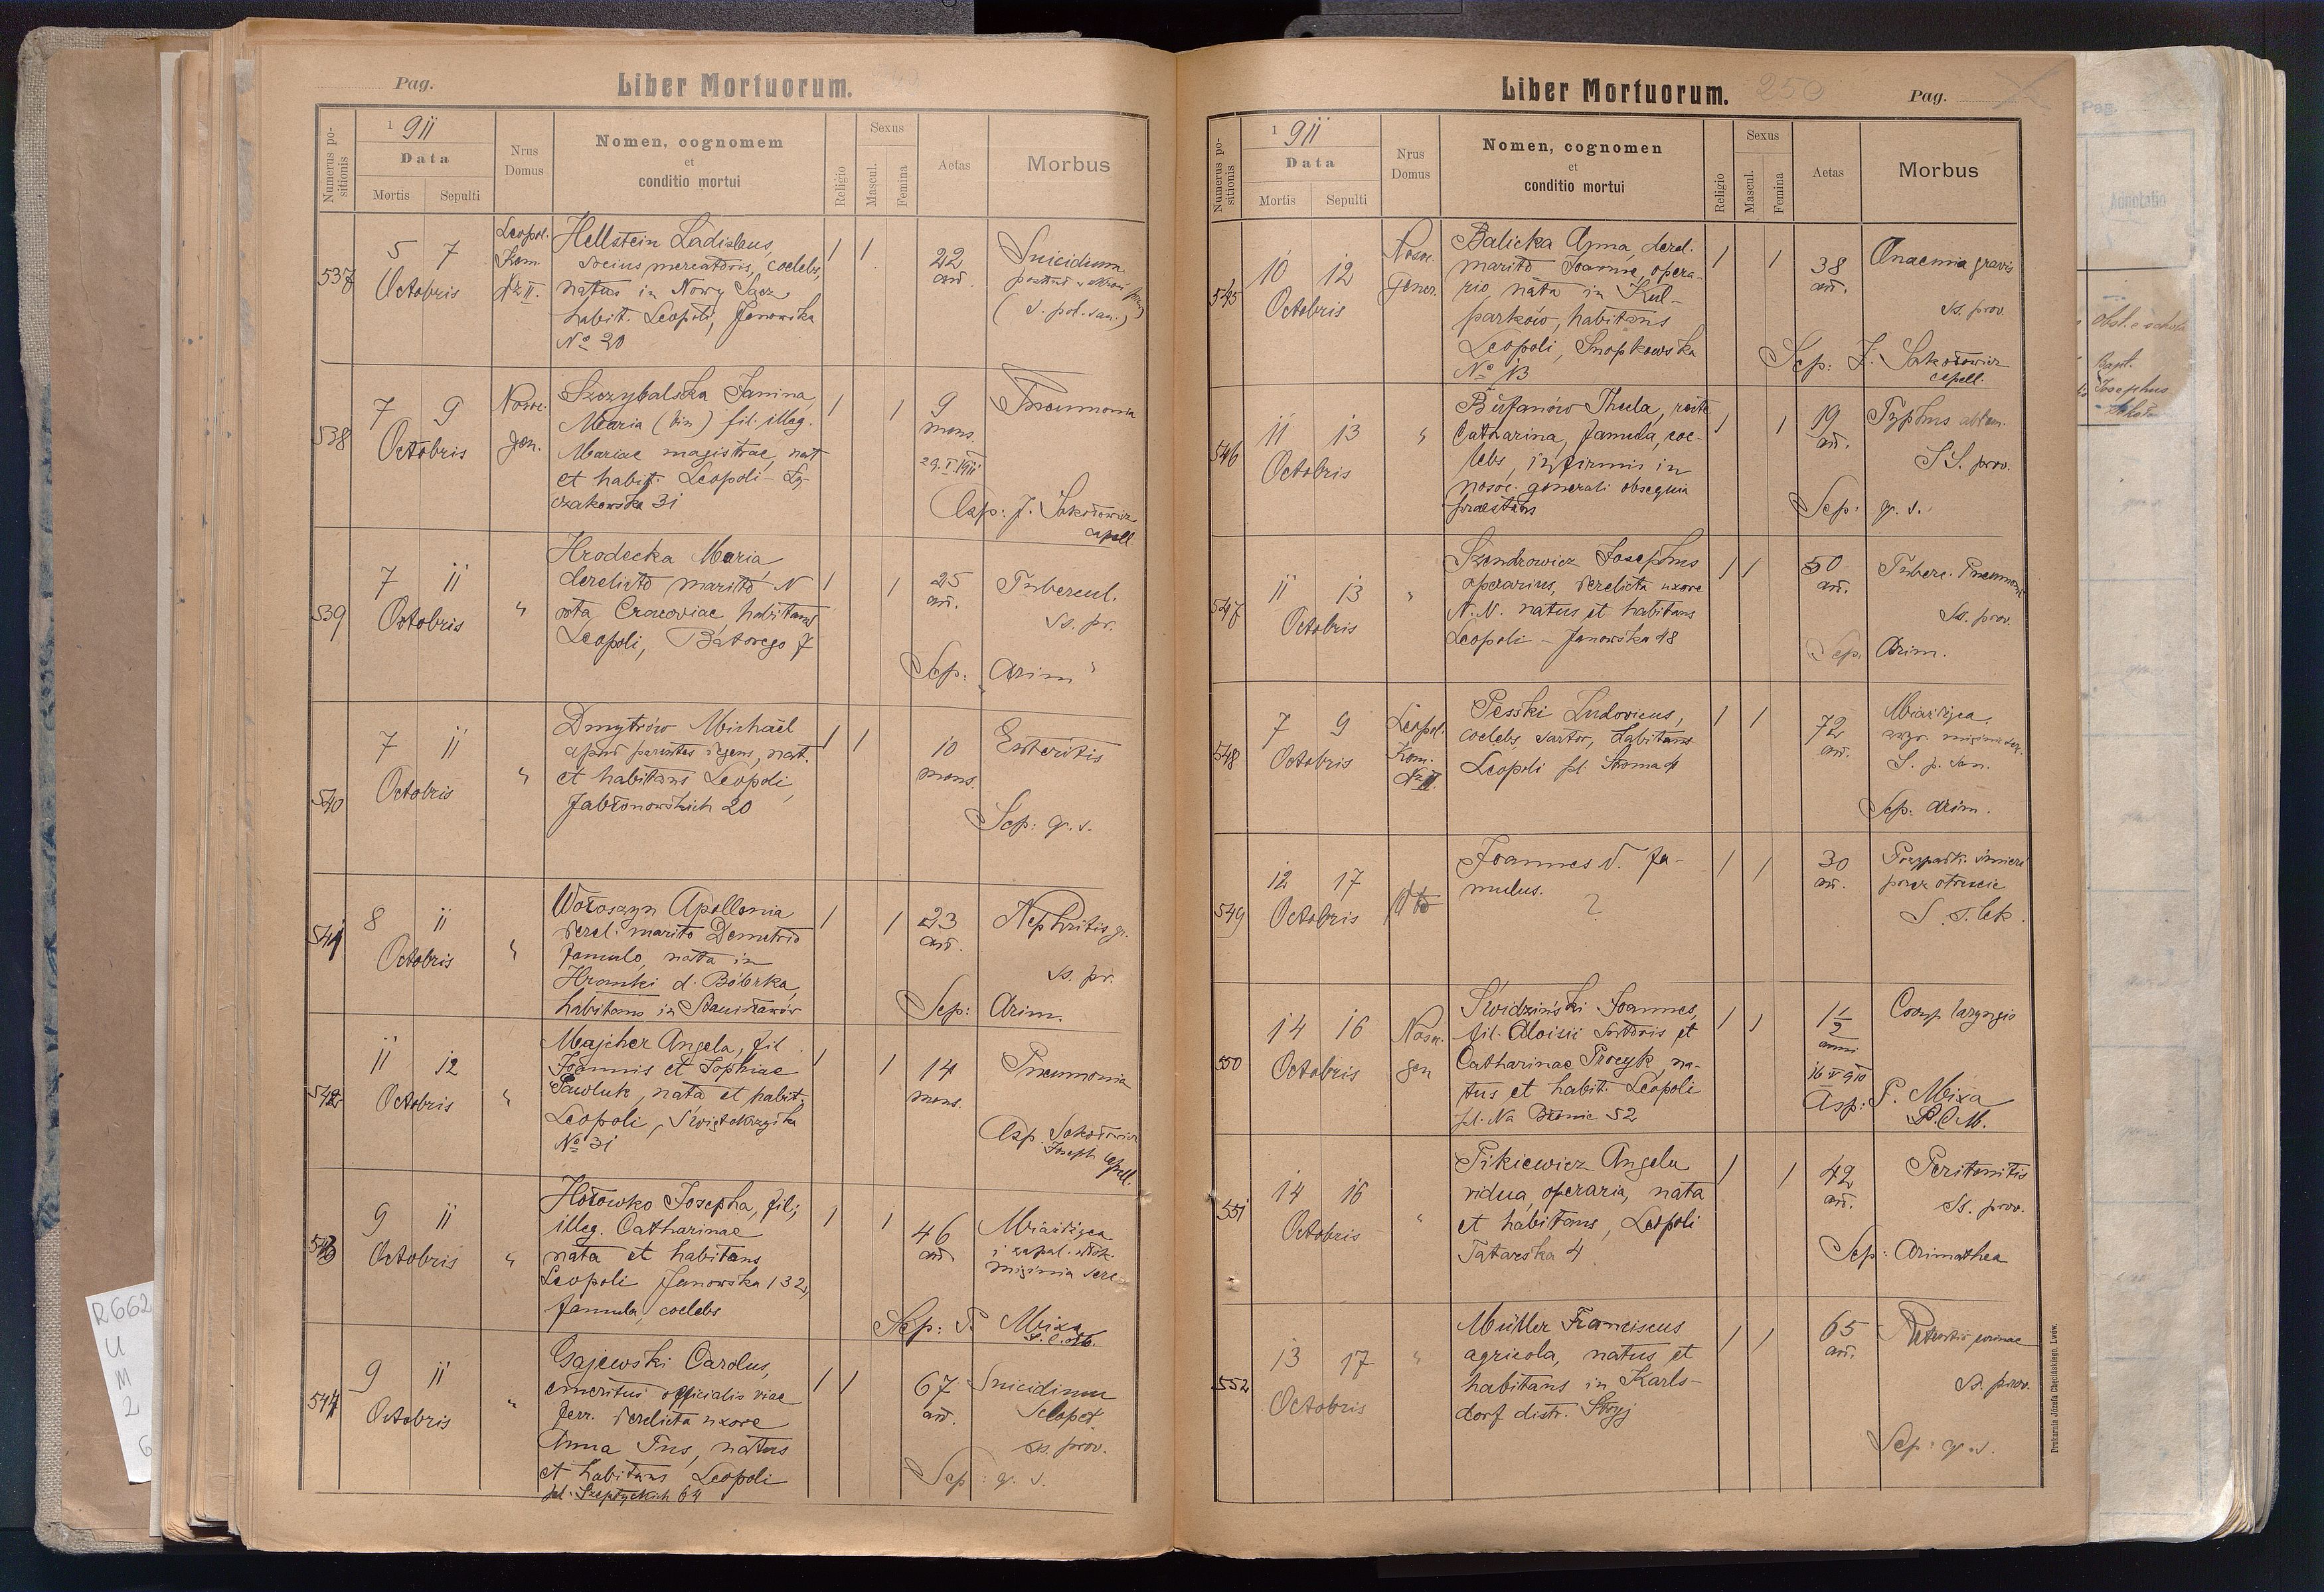 Pag.
Liber Mortuorum.
Numerus po-
sitionis
1 911
Data
Mortis
Sepulti
Nrus
Domus
Nomen, cognomem
et
conditio mortui
Religio
Sexus
Mascul.
Femina
Aetas
Morbus
537
5 7
Octobris
Leopol.
Kom.
Nr II.
Hellstein Ladislaus,
socius mercatoris, coelebs,
natus in Nowy Sącz
habit. Leopoli, Janowska
No 20
1 1
22
an.
Suicidium
(S. pol. san.)
538
7 9
Octobris
Nosoc.
gen.
Szczybalska Janina,
Maria (bin) fil. illeg.
Mariae magistrae, nat
et habit. Leopoli - Ły-
czakowska 31
1 1
9
mens.
29. I 1911
Pneumonia
Asp: J. Sokołowicz
capell.
539
7 11
Octobris
"
Hrodecka Maria
derelicto marito N
orta Cracoviae, habitans
Leopoli, Batorego 7
1 1
25
an.
Tubercul.
Ss. pr.
Sep: "Arim"
540
7 11
Octobris
"
Dmytrów Michaël
apud parentes degens, nat.
et habitans Leopoli,
Jabłonowskich 20
1 1
10
mens.
Enteritis
Sep: g. s.
541
8 11
Octobris
"
Wołoszyn Apollonia
derel. marito Demetrio
famulo, nata in
Hranki d. Bóbrka,
habitans in Stanisławów
1 1
23
an.
Nephritis gr.
Ss. pr.
Sep: Arim.
542
11 12
Octobris
"
Majcher Angela, fil.
Joannis et Sophiae
Pawluk, nata et habit.
Leopoli, Świętokrzyska
No 31
1 1
14
mens.
Pneumonia
Asp. Sokołowicz
Joseph Capell.
543
9 11
Octobris
"
Hołowko Josepha, fil;
illeg. Catharinae
nata et habitans
Leopoli Janowska 132,
famula, coelebs
1 1
46
an.
Miażdżyca
i zapal. włók.
mięśnia serc.
Sep: P. Mixa
S.C.M.
544
9 11
Octobris
"
Gajewski Carolus,
emeritus officialis viae
ferr. derelicta uxore
Anna Tus, natus
et habitans Leopoli
pl. Szeptyckich 64
1 1
67
an.
Suicidium
Sclopet.
ss. prov.
Sep: g. s.
Liber Mortuorum.
250
Pag.
Numerus po-
sitionis
1 911
Data
Mortis
Sepulti
Nrus
Domus
Nomen, cognomen
et
conditio mortui
Religio
Sexus
Mascul.
Femina
Aetas
Morbus
545
10 12
Octobris
Nosoc.
gener.
Balicka Anna, derel.
marito Joanne, opera-
rio, nata in Kul-
parków, habitans
Leopoli, Snopkowska
No 13
1 1
38
an.
Anaemia gravis
ss. prov.
Sep: J. Sokołowicz
capell.
546
11 13
Octobris
"
Bufanów Thecla, recte
Catharina, famula, coe-
lebs, infirmis in
nosoc. generali obsequia
praestans
1 1
19
an.
Typhus abdom.
SS. prov.
Sep: g. s.
547
11 13
Octobris
"
Szendrowicz Josephus
operarius, derelicta uxore
N. N. natus et habitans
Leopoli - Janowska 48
1 1
50
an.
Tuberc. Pneumon
Ss. prov.
Sep. Arim.
548
7 9
Octobris
Leopol.
Kom.
Nr III.
Pesski Ludovicus,
coelebs, sartor, habitans
Leopoli pl. Stroma 4
1 1
72
an.
Miażdżyca,
S. p. san.
Sep: Arim.
549
12 17
Octobris
dtto
Joannes N. fa-
mulus.
?
1 1
30
an.
Przypadk. śmierć
przez otrucie
S. s. lek.
550
14 16
Octobris
Nosoc.
gen
Świdziński Joannes,
fil. Aloisii sutoris et
Catharinae Procyk, na-
tus et habit. Leopoli
pl. Na Błonie 52
1 1
1 1/2
anni
16 V 910
Croup laryngis
Asp: P. Mixa
S.C.M.
551
14 16
Octobris
"
Pikiewicz Angela
vidua, operaria, nata
et habitans, Leopoli
Tatarska 4
1 1
42
an.
Peritonitis
Ss. prov.
Sep: Arimathea
552
13 17
Octobris
"
Müller Franciscus
agricola, natus et
habitans in Karls-
dorf distr. Stryj
1 1
65
an.
urinae
Ss. prov.
Sep: g. s.
Drukarnia Józefa Chęcińskiego, Lwów.
Pag.
Adnotatio
Josephus
R662
U
M
2
6